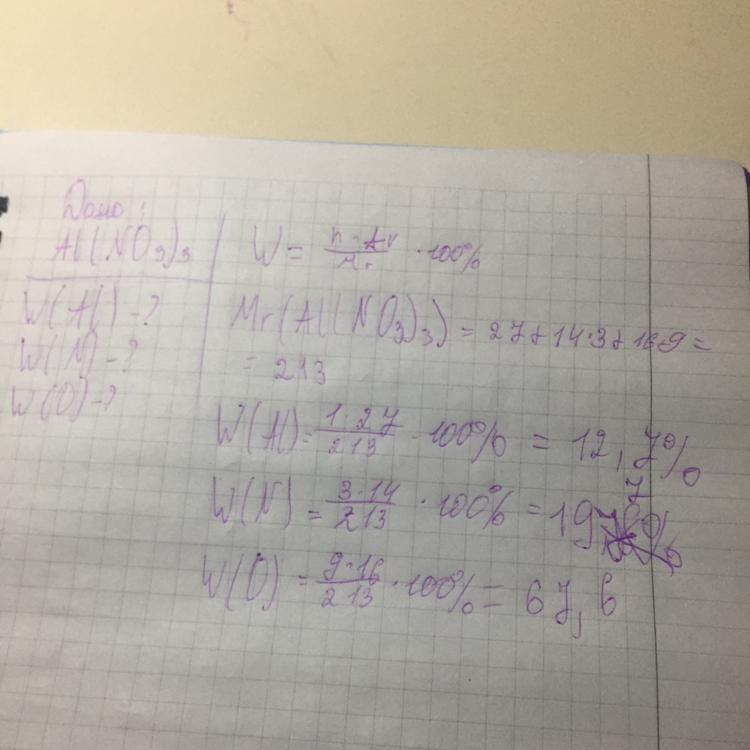 Дано:
Al(NO3)3
W(Al) - ?
W(N) - ?
W(O) - ?
W = n · Ar / Mr · 100%
Mr(Al(NO3)3) = 27 + 14·3 + 16·9 =
= 213
W(Al) = 1·27 / 213 · 100% = 12,7%
W(N) = 3·14 / 213 · 100% = 19
W(O) = 9·16 / 213 · 100% = 67,6